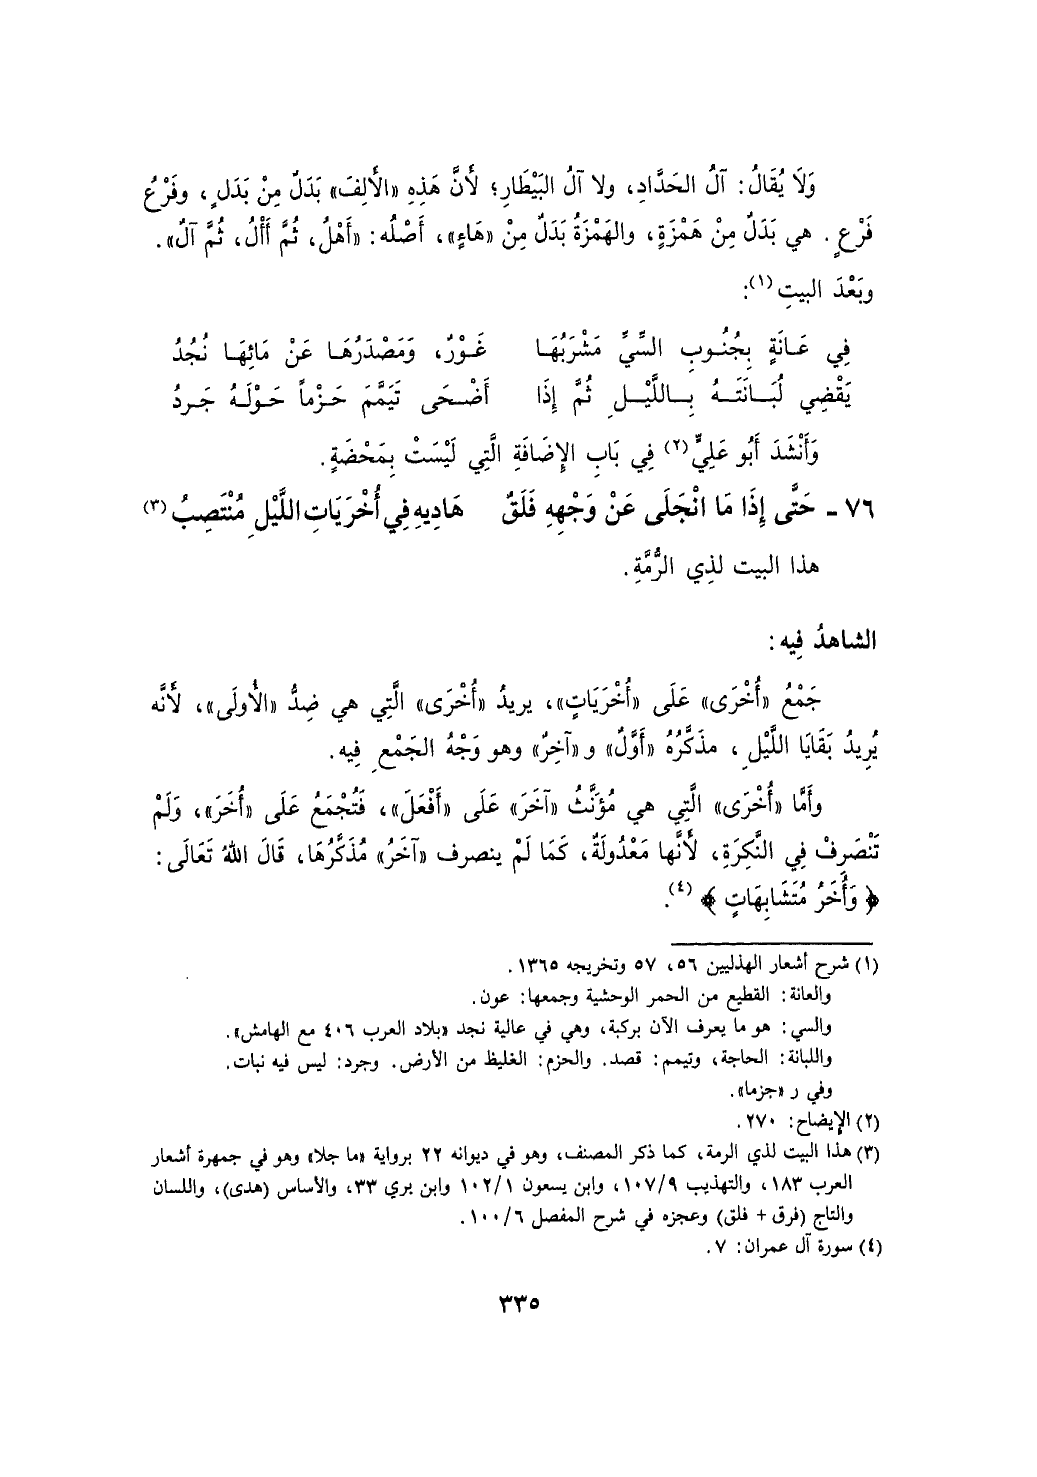 وَلَا يُقَالُ: آلُ الحَدَّادِ، ولا آلُ البَيْطَارِ؛ لأَنَّ هَذِهِ «الأَلِفَ» بَدَلٌ مِنْ بَدَلٍ، وفَرْعُ
فَرْعٍ. هي بَدَلٌ مِنْ هَمْزَةٍ، والهَمْزَةُ بَدَلٌ مِنْ «هَاءٍ»، أَصْلُه: «أَهْلٌ، ثُمَّ أَأْلٌ، ثُمَّ آلٌ».
وبَعْدَ البيتِ(١):
فِي عَانَةٍ بِجُنُوبِ السِّيِّ مَشْرَبُهَا غَوْرٌ، وَمَصْدَرُهَا عَنْ مَائِهَا نُجُدُ
يَقْضِي لُبَانَتَهُ بِاللَّيْلِ ثُمَّ إِذَا أَضْحَى تَيَمَّمَ حَزْماً حَوْلَهُ جَرَدُ
وَأَنْشَدَ أَبُو عَلِيٍّ(٢) فِي بَابِ الإِضَافَةِ الَّتِي لَيْسَتْ بِمَحْضَةٍ.
٧٦ - حَتَّى إِذَا مَا انْجَلَى عَنْ وَجْهِهِ فَلَقٌ هَادِيهِ فِي أُخْرَيَاتِ اللَّيْلِ مُنْتَصِبُ(٣)
هذا البيت لذِي الرُّمَّةِ.
الشاهدُ فِيه:
جَمْعُ «أُخْرَى» عَلَى «أُخْرَيَاتٍ»، يريدُ «أُخْرَى» الَّتِي هي ضِدُّ «الأُولَى»، لأَنَّه
يُرِيدُ بَقَايَا اللَّيْلِ، مذَكَّرُهُ «أَوَّلٌ» و «آخِرٌ» وهو وَجْهُ الجَمْعِ فِيه.
وأَمَّا «أُخْرَى» الَّتِي هي مُؤَنَّثُ «آخَرَ» عَلَى «أَفْعَلَ»، فَتُجْمَعُ عَلَى «أُخَرَ»، وَلَمْ
تَنْصَرِفْ فِي النَّكِرَةِ، لأَنَّها مَعْدُولَةٌ، كَمَا لَمْ ينصرف «آخَرُ» مُذَكَّرُهَا، قَالَ اللهُ تَعَالَى:
﴿ وَأُخَرُ مُتَشَابِهَاتٍ ﴾(٤).
(١) شرح أشعار الهذليين ٥٦، ٥٧ وتخريجه ١٣٦٥.
والعانة: القطيع من الحمر الوحشية وجمعها: عون.
والسي: هو ما يعرف الآن بركبة، وهي في عالية نجد «بلاد العرب ٤٠٦ مع الهامش».
واللبانة: الحاجة، وتيمم: قصد. والحزم: الغليظ من الأرض. وجرد: ليس فيه نبات.
وفي ر «جزما».
(٢) الإيضاح: ٢٧٠.
(٣) هذا البيت لذي الرمة، كما ذكر المصنف، وهو في ديوانه ٢٢ برواية «ما جلا» وهو في جمهرة أشعار
العرب ١٨٣، والتهذيب ١٠٧/٩، وابن يسعون ١٠٢/١ وابن بري ٣٣، والأساس (هدى)، واللسان
والتاج (فرق + فلق) وعجزه في شرح المفصل ١٠٠/٦.
(٤) سورة آل عمران: ٧.
٣٣٥